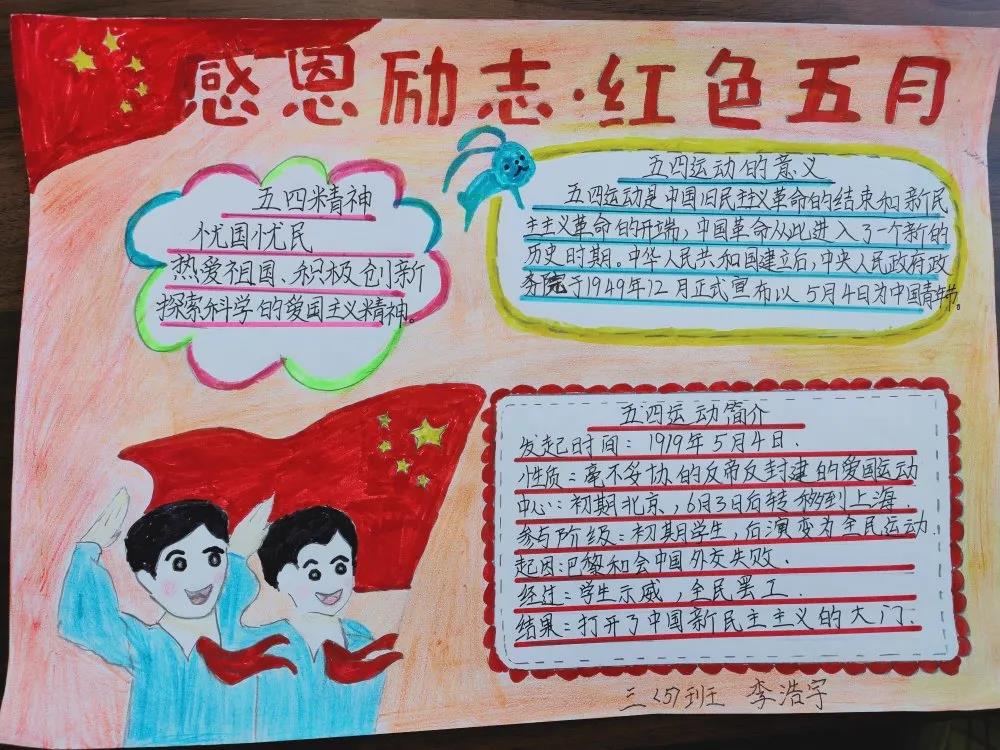 感恩励志·红色五月
五四精神
忧国忧民
热爱祖国、积极创新
探索科学的爱国主义精神。
五四运动的意义
五四运动是中国旧民主义革命的结束和新民
主主义革命的开端，中国革命从此进入了一个新的
历史时期。中华人民共和国建立后，中央人民政府政
务院于1949年12月正式宣布以5月4日为中国青年节。
五四运动简介
发起时间：1919年5月4日.
性质：毫不妥协的反帝反封建的爱国运动
中心：初期北京，6月3日后转移到上海.
参与阶级：初期学生，后演变为全民运动.
起因:巴黎和会中国外交失败.
经过：学生示威，全民罢工.
结果：打开了中国新民主主义的大门.
三〈5〉班 李浩宇